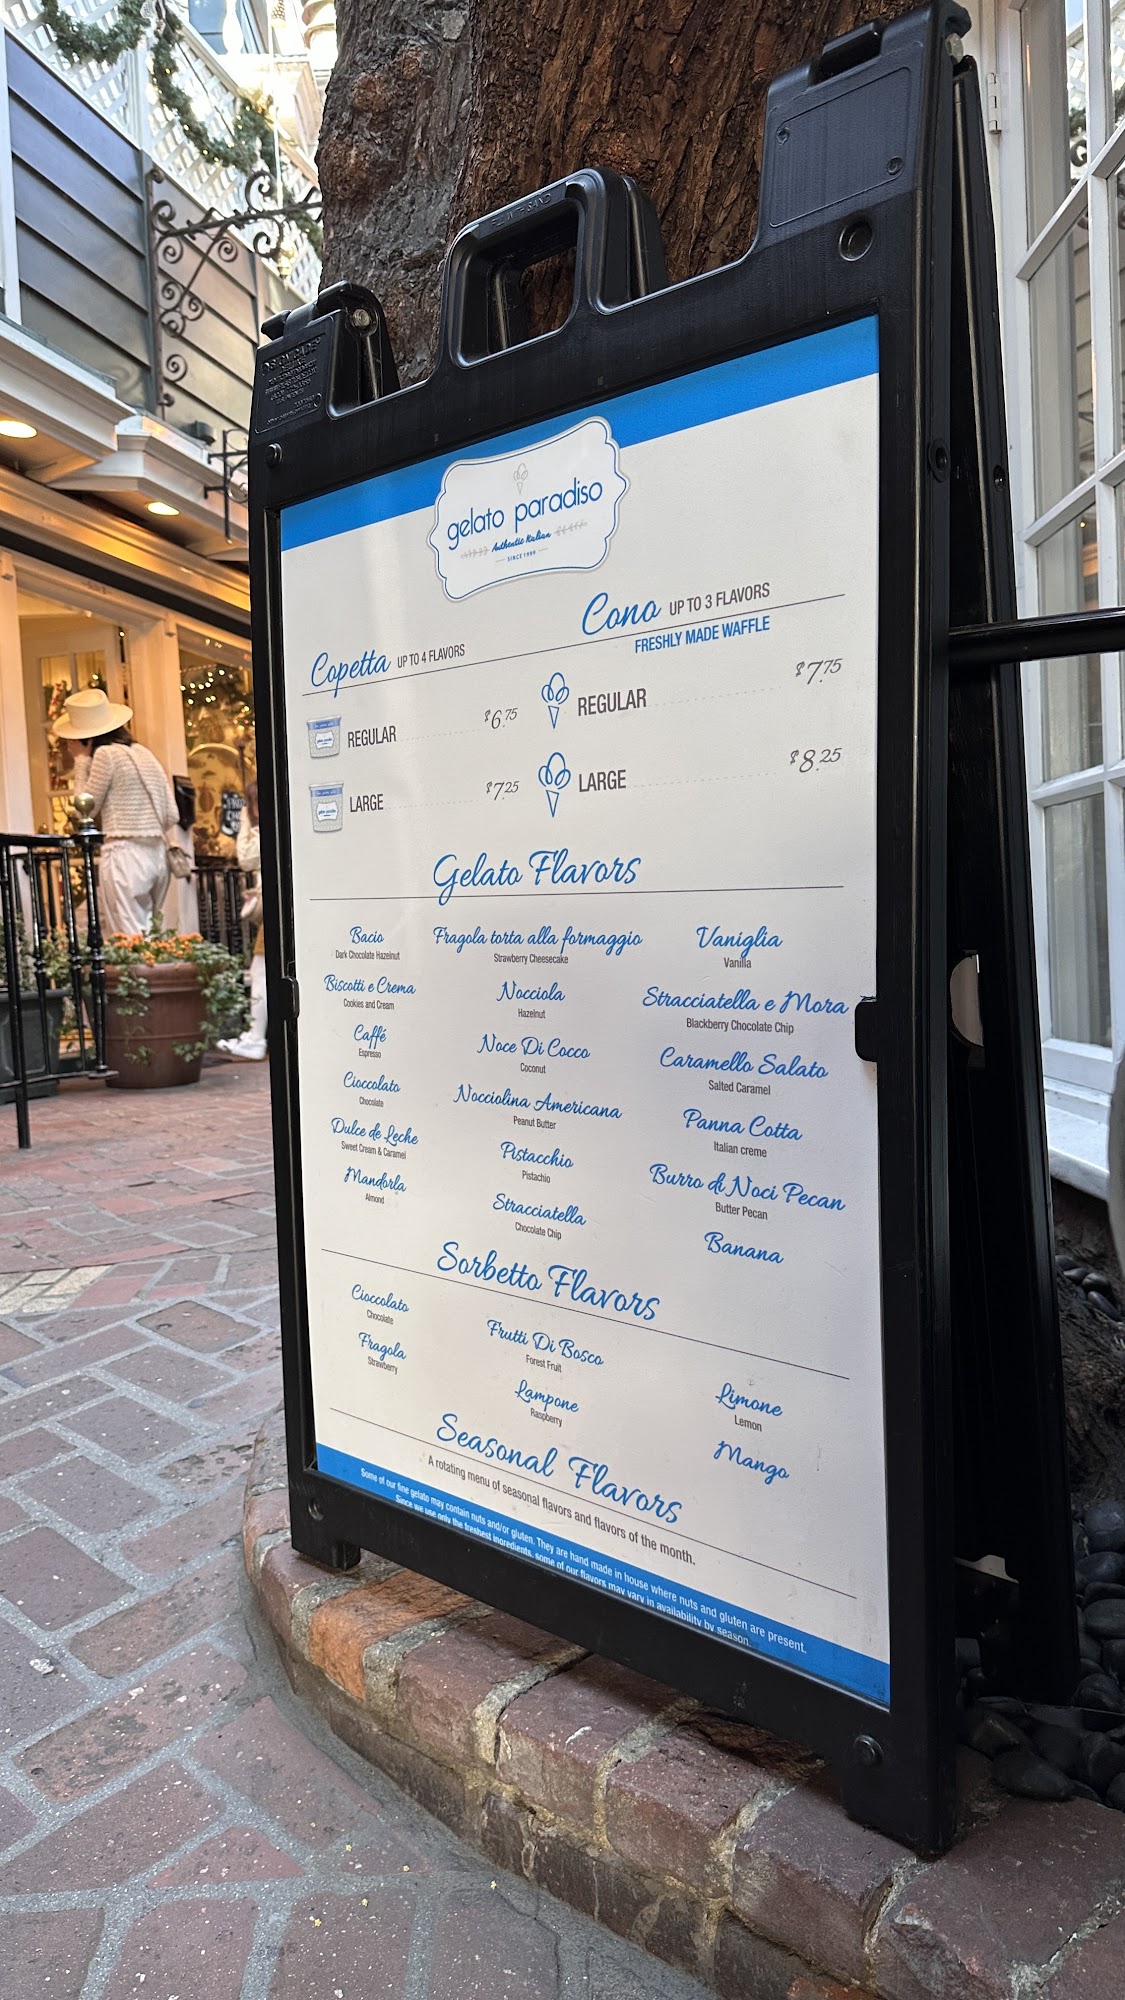 FILL WITH SAND
gelato paradiso
Authentic Italian
SINCE 1999
Copetta UP TO 4 FLAVORS
REGULAR $6.75
LARGE $7.25
Cono UP TO 3 FLAVORS
FRESHLY MADE WAFFLE
REGULAR $7.75
LARGE $8.25
Gelato Flavors
Bacio
Dark Chocolate Hazelnut
Biscotti e Crema
Cookies and Cream
Caffé
Espresso
Cioccolato
Chocolate
Dulce de Leche
Sweet Cream & Caramel
Mandorla
Almond
Fragola torta alla formaggio
Strawberry Cheesecake
Nocciola
Hazelnut
Noce Di Cocco
Coconut
Nocciolina Americana
Peanut Butter
Pistacchio
Pistachio
Stracciatella
Chocolate Chip
Vaniglia
Vanilla
Stracciatella e Mora
Blackberry Chocolate Chip
Caramello Salato
Salted Caramel
Panna Cotta
Italian creme
Burro di Noci Pecan
Butter Pecan
Banana
Sorbetto Flavors
Cioccolato
Chocolate
Fragola
Strawberry
Frutti Di Bosco
Forest Fruit
Lampone
Raspberry
Limone
Lemon
Mango
Seasonal Flavors
A rotating menu of seasonal flavors and flavors of the month.
Some of our fine gelato may contain nuts and/or gluten. They are hand made in house where nuts and gluten are present.
Since we use only the freshest ingredients, some of our flavors may vary in availability by season.